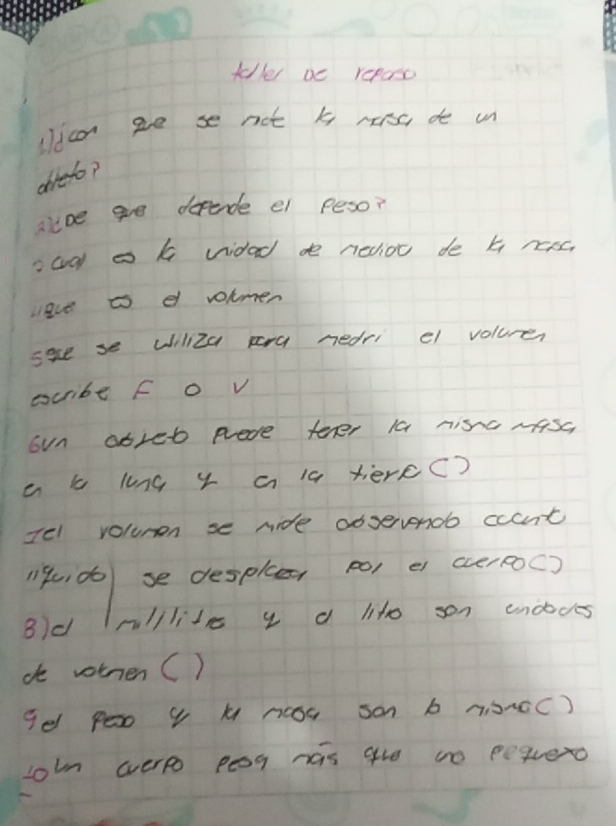 taller de repaso
1) ¿con que se mide la masa de un
objeto?
2) ¿De que depende el peso?
3 cual es la unidad de medida de la masa
4 que es el volumen
5 que se utiliza para medri el volumen
escribe F o V
6 un objeto puede tener la misma masa
en la luna y en la tierra ( )
7 el volumen se mide observando cuanto
liquido se desplaza por el cuerpo ( )
8) el mililitro y el litro son unidades
de volumen ( )
9 el peso y la masa son lo mismo ( )
10 un cuerpo pesa más que uno pequeño